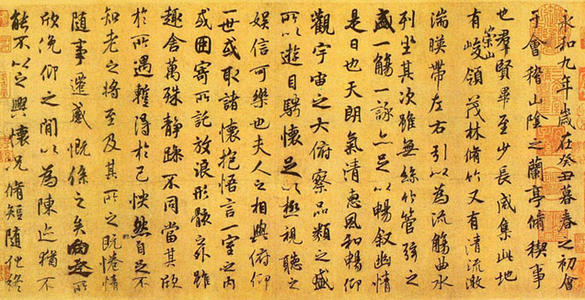 永和九年歲在癸丑暮春之初會
于會稽山陰之蘭亭脩稧事
也羣賢畢至少長咸集此地
有崇山峻領茂林脩竹又有清流激
湍暎帶左右引以為流觴曲水
列坐其次雖無絲竹管弦之
盛一觴一詠亦足以暢敘幽情
是日也天朗氣清惠風和暢仰
觀宇宙之大俯察品類之盛
所以遊目騁懷足以極視聽之
娛信可樂也夫人之相與俯仰
一世或取諸懷抱悟言一室之內
或因寄所託放浪形骸之外雖
趣舍萬殊靜躁不同當其欣
於所遇暫得於己怏然自足不
知老之將至及其所之既惓情
隨事遷感慨係之矣向之所
欣俛仰之間以為陳迹猶不
能不以之興懷況脩短隨化終